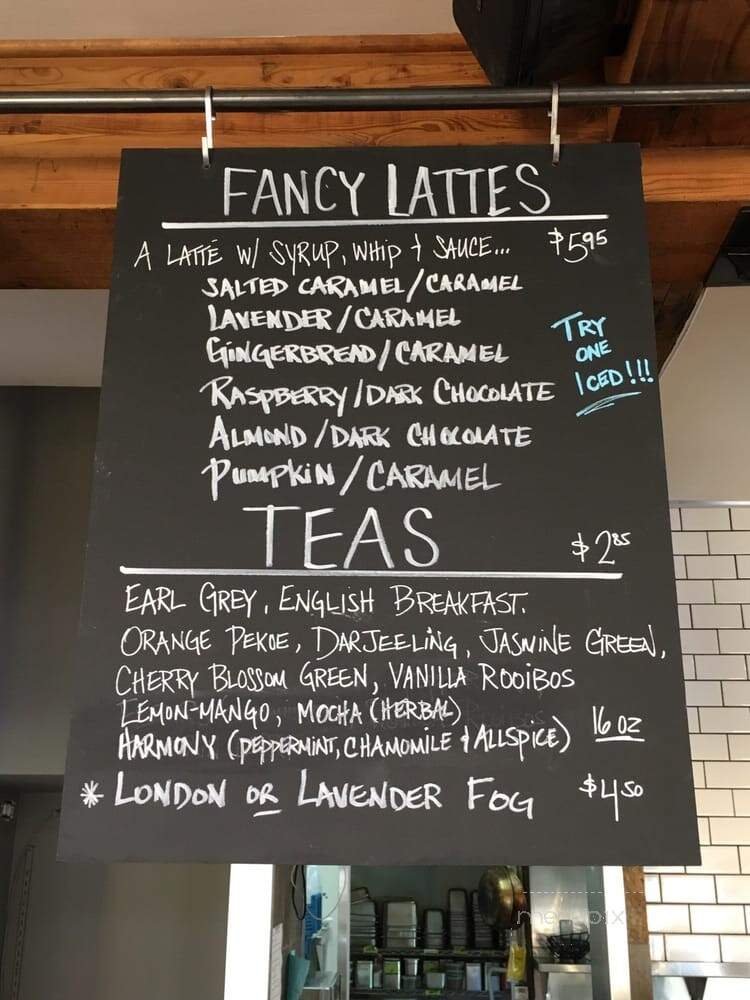 FANCY LATTES
A LATTÉ W/ SYRUP, WHIP + SAUCE... $5.95
SALTED CARAMEL/CARAMEL
LAVENDER/CARAMEL
GINGERBREAD/CARAMEL
RASPBERRY/DARK CHOCOLATE
ALMOND/DARK CHOCOLATE
PUMPKIN/CARAMEL
TRY
ONE
ICED!!!
TEAS $2.85
EARL GREY, ENGLISH BREAKFAST.
ORANGE PEKOE, DARJEELING, JASMINE GREEN,
CHERRY BLOSSOM GREEN, VANILLA ROOIBOS
LEMON-MANGO, MOCHA (HERBAL)
HARMONY (PEPPERMINT, CHAMOMILE + ALLSPICE) 16 OZ
* LONDON OR LAVENDER FOG $4.50